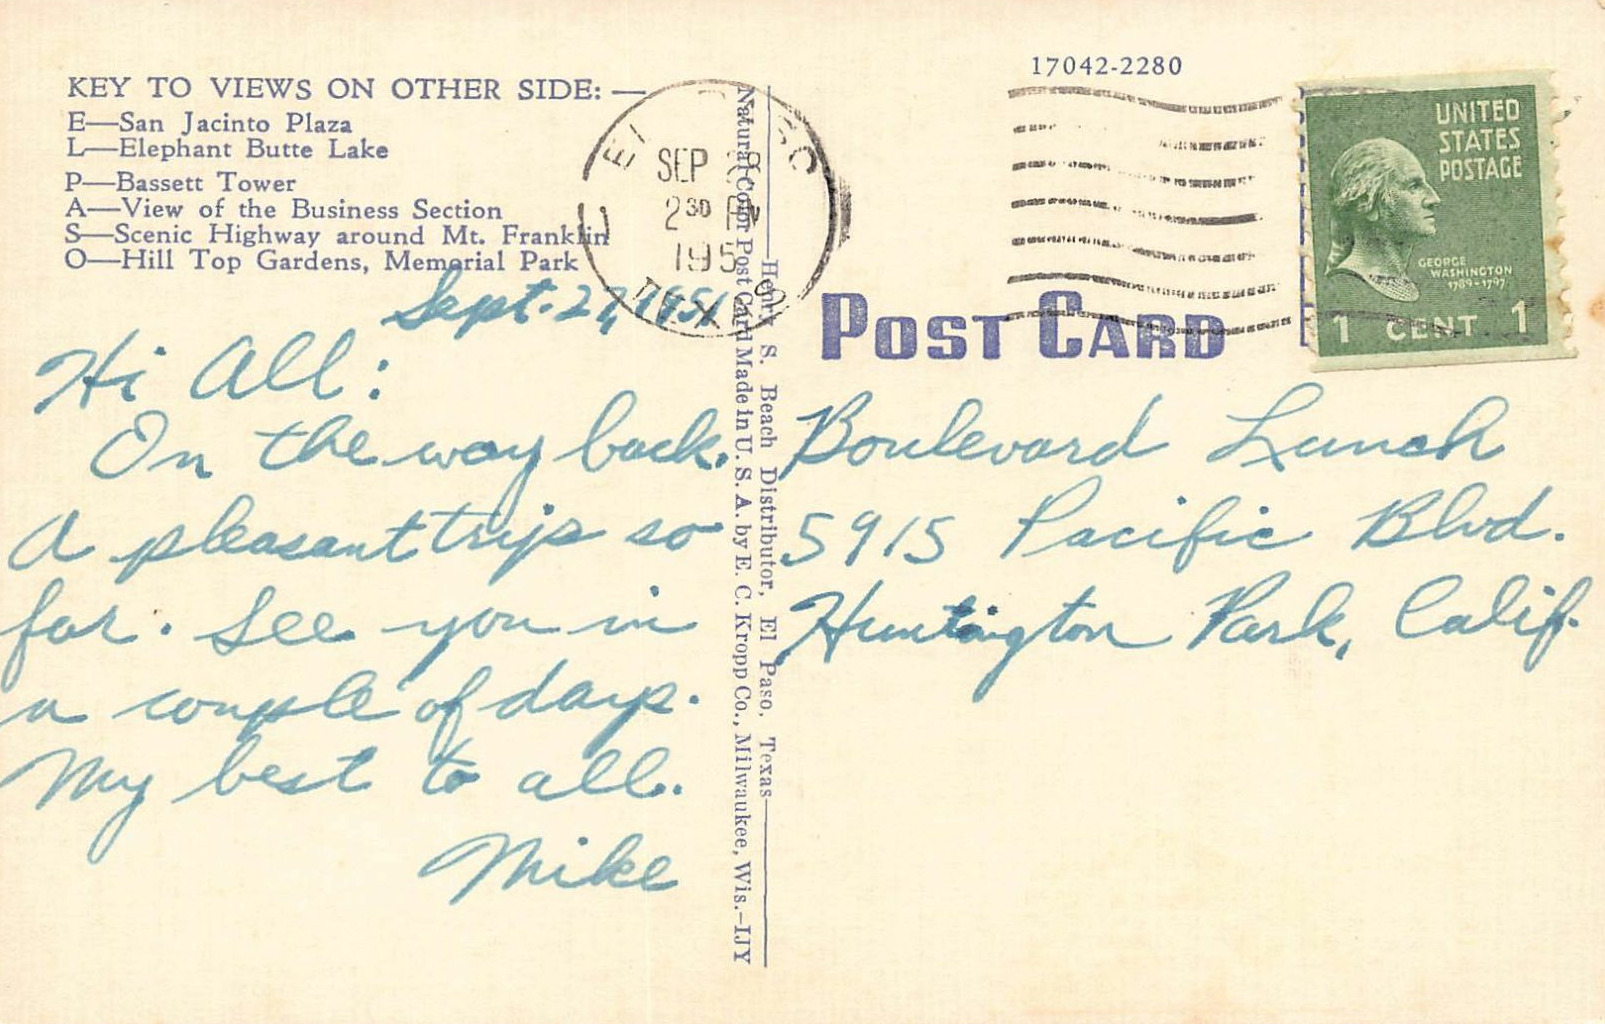 17042-2280
KEY TO VIEWS ON OTHER SIDE: —
E—San Jacinto Plaza
L—Elephant Butte Lake
P—Bassett Tower
A—View of the Business Section
S—Scenic Highway around Mt. Franklin
O—Hill Top Gardens, Memorial Park
SEP 28
2 30 PM
195
UNITED
STATES
POSTAGE
GEORGE
WASHINGTON
1789-1797
1 CENT 1
POST CARD
Sept. 27, 1951
Hi All:
On the way back.
A pleasant trip so
far. See you in
a couple of days.
My best to all.
Mike
Natural Color Post Card Made in U. S. A. by E. C. Kropp Co., Milwaukee, Wis.—IJY
Henry S. Beach Distributor, El Paso, Texas
Boulevard Lunch
5915 Pacific Blvd.
Huntington Park, Calif.